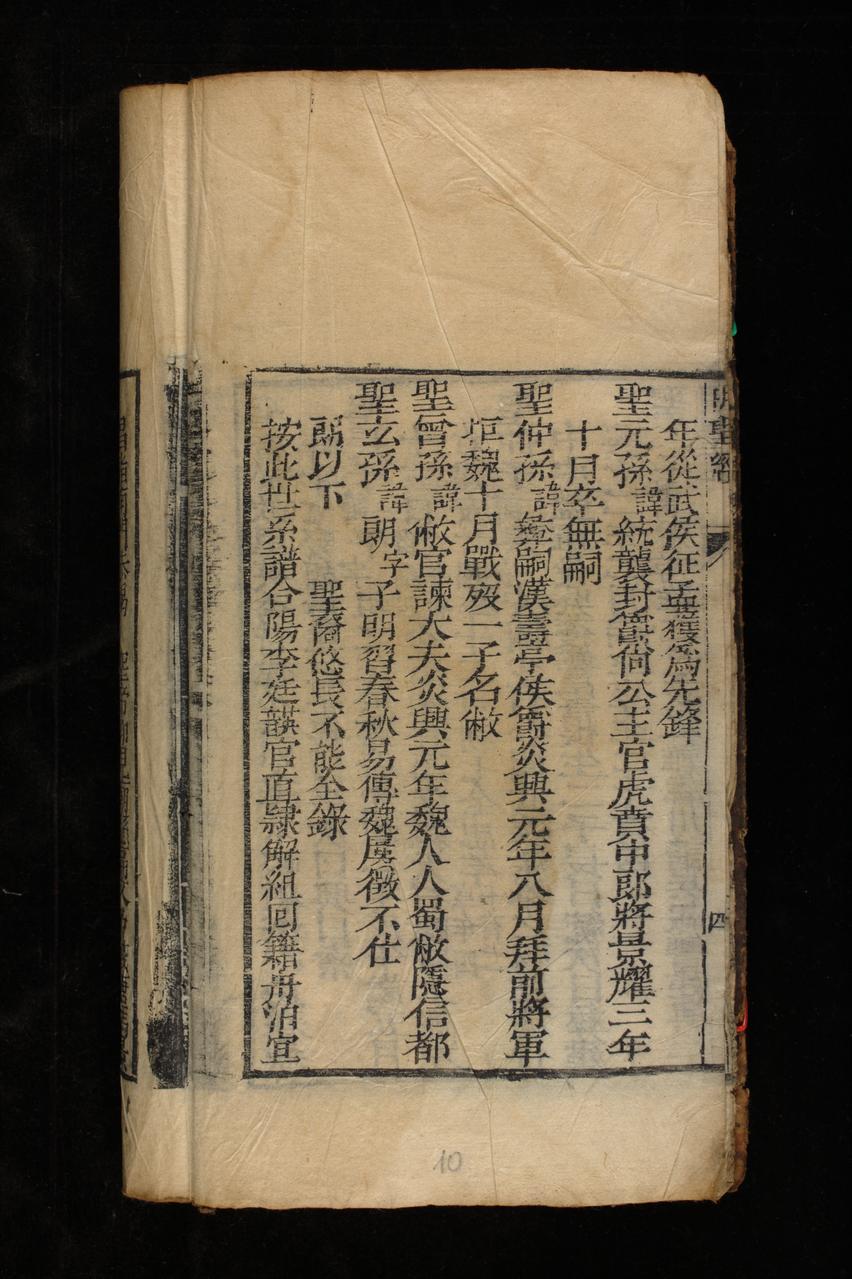 明聖經
四
年從武侯征孟獲為先鋒
聖元孫諱統襲封爵尚公主官虎賁中郎將景耀三年
十月卒無嗣
聖仲孫諱彝嗣漢壽亭侯爵炎興元年八月拜前將軍
拒魏十月戰歿一子名僘
聖曾孫諱官諫大夫炎興元年魏人入蜀隱信都
聖玄孫諱朗字子明習春秋易傳魏屢徵不仕
朗以下聖裔悠長不能全錄
按此世系譜合陽李廷謨官直隸解組回籍舟泊宜
10